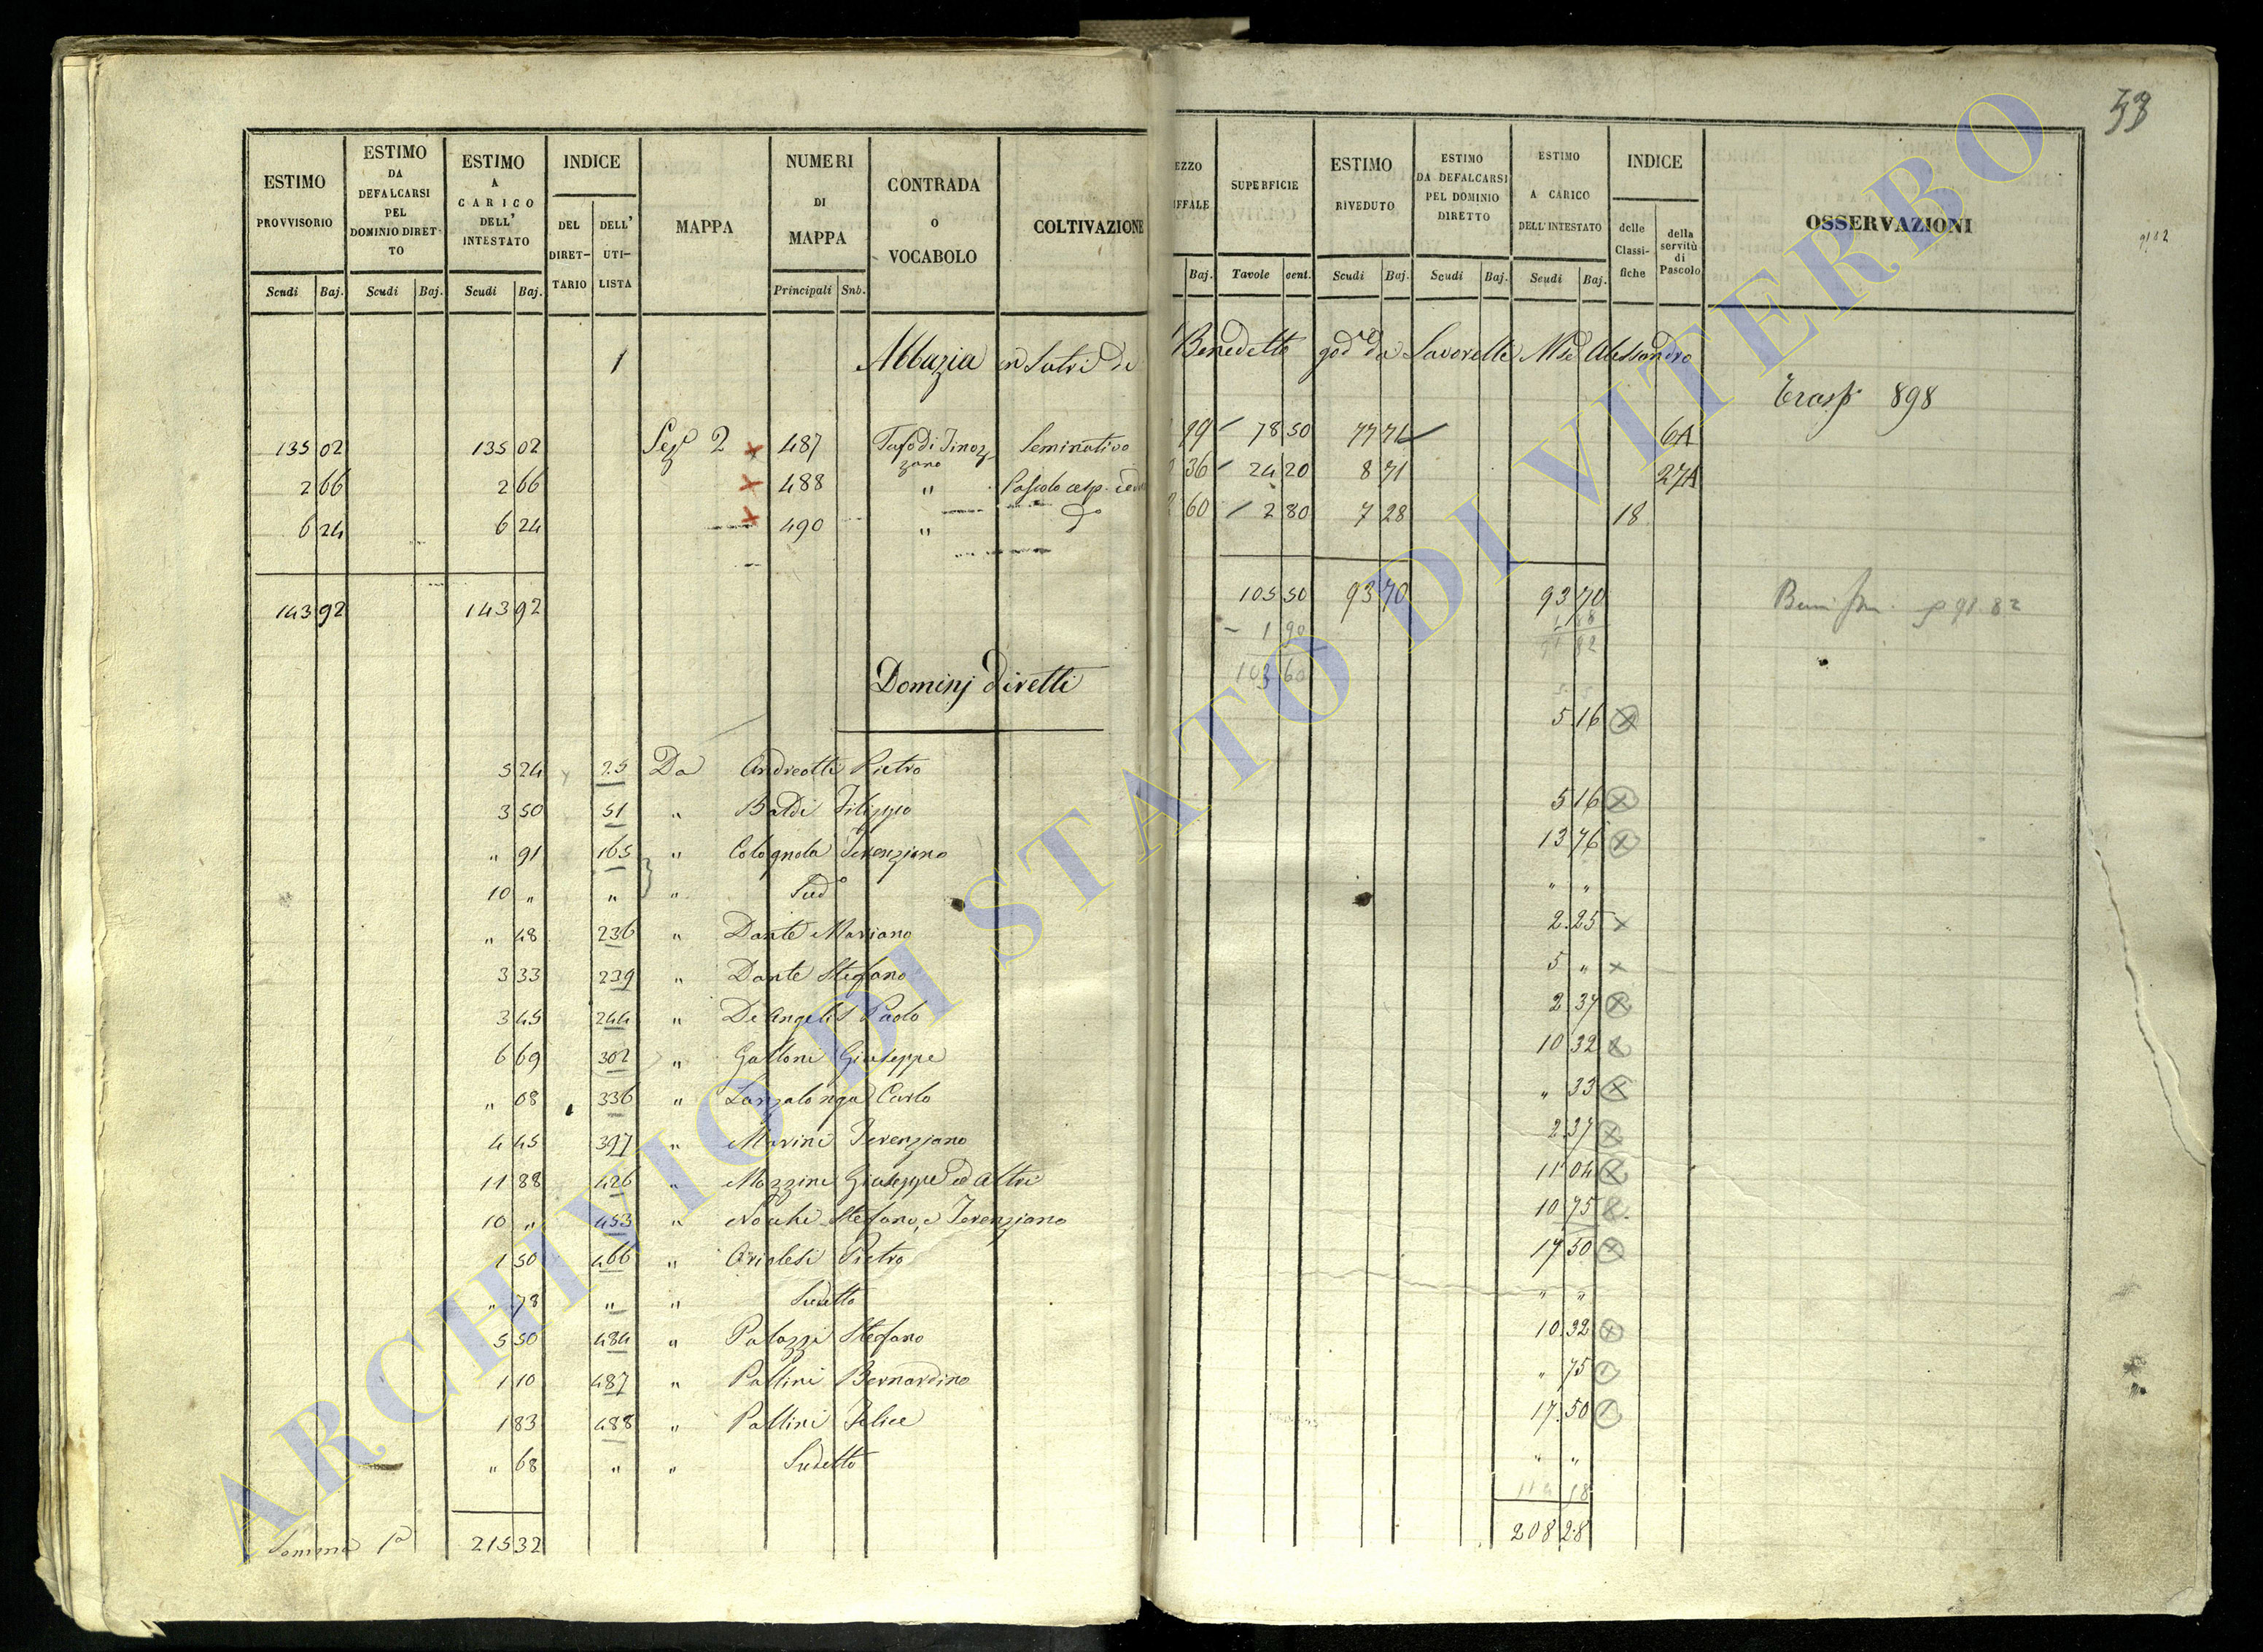 53
ESTIMO PROVVISORIO
ESTIMO DA DEFALCARSI PEL DOMINIO DIRET-TO
ESTIMO A CARICO DELL' INTESTATO
INDICE
DEL DIRET-TARIO
DELL' UTI-LISTA
MAPPA
NUMERI DI MAPPA
CONTRADA O VOCABOLO
COLTIVAZIONE
EZZO IFFALE
SUPERFICIE
ESTIMO RIVEDUTO
ESTIMO DA DEFALCARSI PEL DOMINIO DIRETTO
ESTIMO A CARICO DELL'INTESTATO
INDICE
delle Classi-fiche
della servitù di Pascolo
OSSERVAZIONI
9182
Scudi Baj. Scudi Baj. Scudi Baj. Principali Snb. Baj. Tavole cent. Scudi Baj. Scudi Baj. Scudi Baj.
1 Abbazia in Sutri di Benedetto god. da Savorelli Alessandro
Trasp. 898
135 02 135 02 Sez. 2 487 Seminativo 99 78 50 77 71 6A
2 66 2 66 488 " Pascolo cesp. 36 24 20 8 71 27A
6 24 6 24 490 " 60 2 80 7 28 18
143 92 143 92 105 50 93 70 93 70
91 82
- 1 90
103 60
Dominj diretti
5 16
5 24 25 Da Andreotti Pietro
3 50 51 " Baldi Filippo 5 16
" 91 165 " Colognola Terenziano 13 76
10 " " " Sud.o " "
" 48 236 " Dante Mariano 2 25
3 33 239 " Dante Stefano 5 "
3 45 244 " De Angelis Paolo 2 37
6 69 302 " Galloni Giuseppe 10 32
" 08 336 " Lanzalonga Carlo " 33
4 45 397 " Marini Terenziano 2 37
11 88 426 " Mazzini Giuseppe ed altri 11 04
10 " 453 " Nochi Stefano, e Terenziano 10 75
1 50 466 " Oriolesi Pietro 17 50
" 78 " " Sudetto " "
5 50 484 " Palazzi Stefano 10 32
1 10 487 " Pallini Bernardino " 75
1 83 488 " Pallini Felice 17 50
" 68 " " Sudetto " "
Somma 215 32 208 28
ARCHIVIO DI STATO DI VITERBO